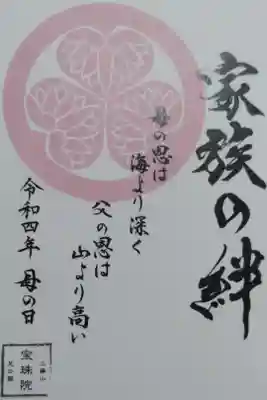 家族の絆
母の恩は
海より深く
父の恩は
山より高い
令和四年 母の日
三縁山
宝珠院
芝公園